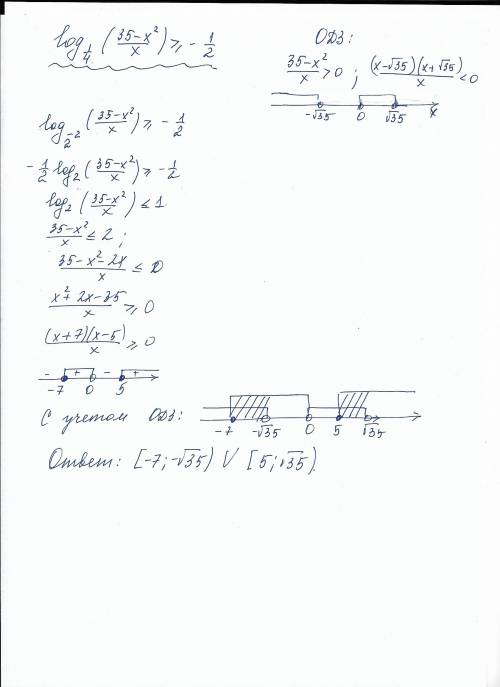 log_{1/4} ((35-x²)/x) ≥ -1/2
ОДЗ:
(35-x²)/x > 0 ; ((x-√35)(x+√35))/x < 0
-√35 0 √35 x
log_{2^{-2}} ((35-x²)/x) ≥ -1/2
-1/2 log_2 ((35-x²)/x) ≥ -1/2
log_2 ((35-x²)/x) ≤ 1
(35-x²)/x ≤ 2 ;
(35-x²-2x)/x ≤ 0
(x²+2x-35)/x ≥ 0
((x+7)(x-5))/x ≥ 0
- + - +
-7 0 5
С учетом ОДЗ:
-7 -√35 0 5 √35
Ответ: [-7; -√35) ∪ [5; √35).